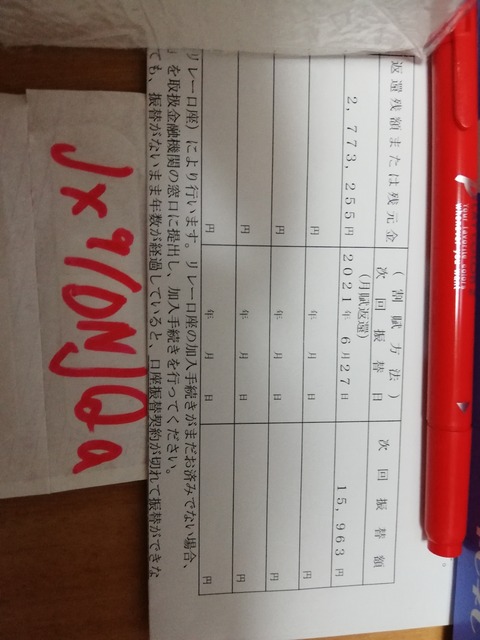 返還残額または残元金 (割賦方法) 次回振替日 次回振替額
2,773,255円 (月賦返還) 2021年 6月27日 15,963円
円 年 月 日 円
円 年 月 日 円
円 年 月 日 円
円 年 月 日 円
リレー口座)により行います。リレー口座の加入手続きがまだお済みでない場合、
」を取扱金融機関の窓口に提出し、加入手続きを行ってください。
ても、振替がないまま年数が経過していると、口座振替契約が切れて振替ができな
Your favorite colors
whenever you want